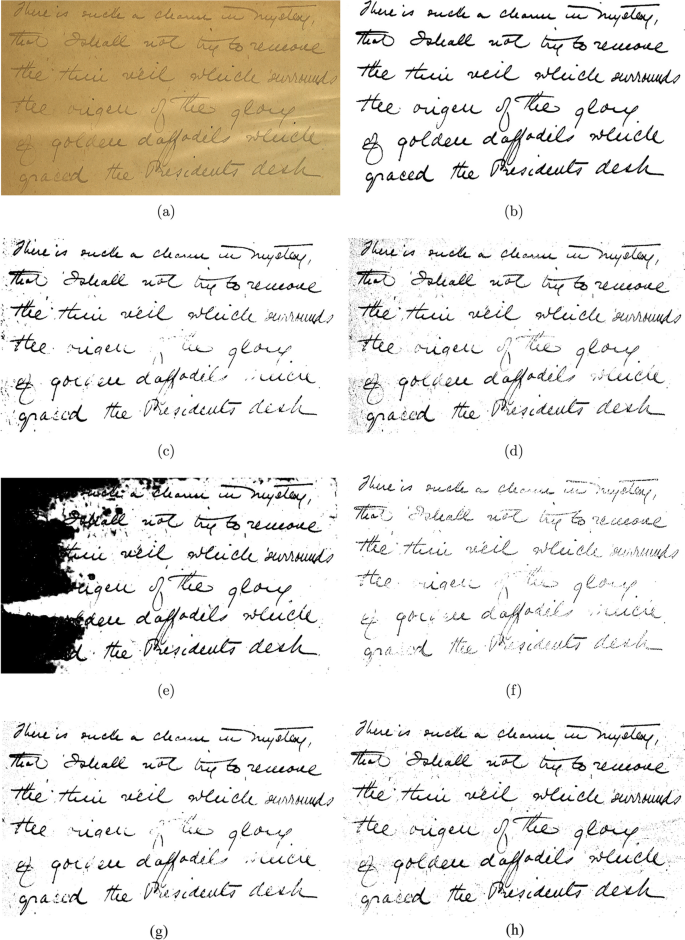 There is such a charm in mystery,
that I shall not try to remove
the thin veil which surrounds
the origen of the glory
of golden daffodils which
graced the Presidents desk
(a)
There is such a charm in mystery,
that I shall not try to remove
the thin veil which surrounds
the origen of the glory
of golden daffodils which
graced the Presidents desk
(b)
There is such a charm in mystery,
that I shall not try to remove
the thin veil which surrounds
the origen the glory
of golden daffodils
graced the Presidents desk
(c)
There is such a charm in mystery,
that I shall not try to remove
the thin veil which surrounds
the origen of the glory
of golden daffodils which
graced the Presidents desk
(d)
such a charm in mystery,
shall not try to remove
thin veil which surrounds
origen of the glory
daffodils which
the Presidents desk
(e)
There is such a charm in mystery,
that I shall not try to remove
the thin veil which surrounds
the origen the glory
of golden daffodils
graced the Presidents desk
(f)
There is such a charm in mystery,
that I shall not try to remove
the thin veil which surrounds
the origen of the glory
of golden daffodils
graced the Presidents desk
(g)
There is such a charm in mystery,
that I shall not try to remove
the thin veil which surrounds
the origen of the glory
of golden daffodils which
graced the Presidents desk
(h)